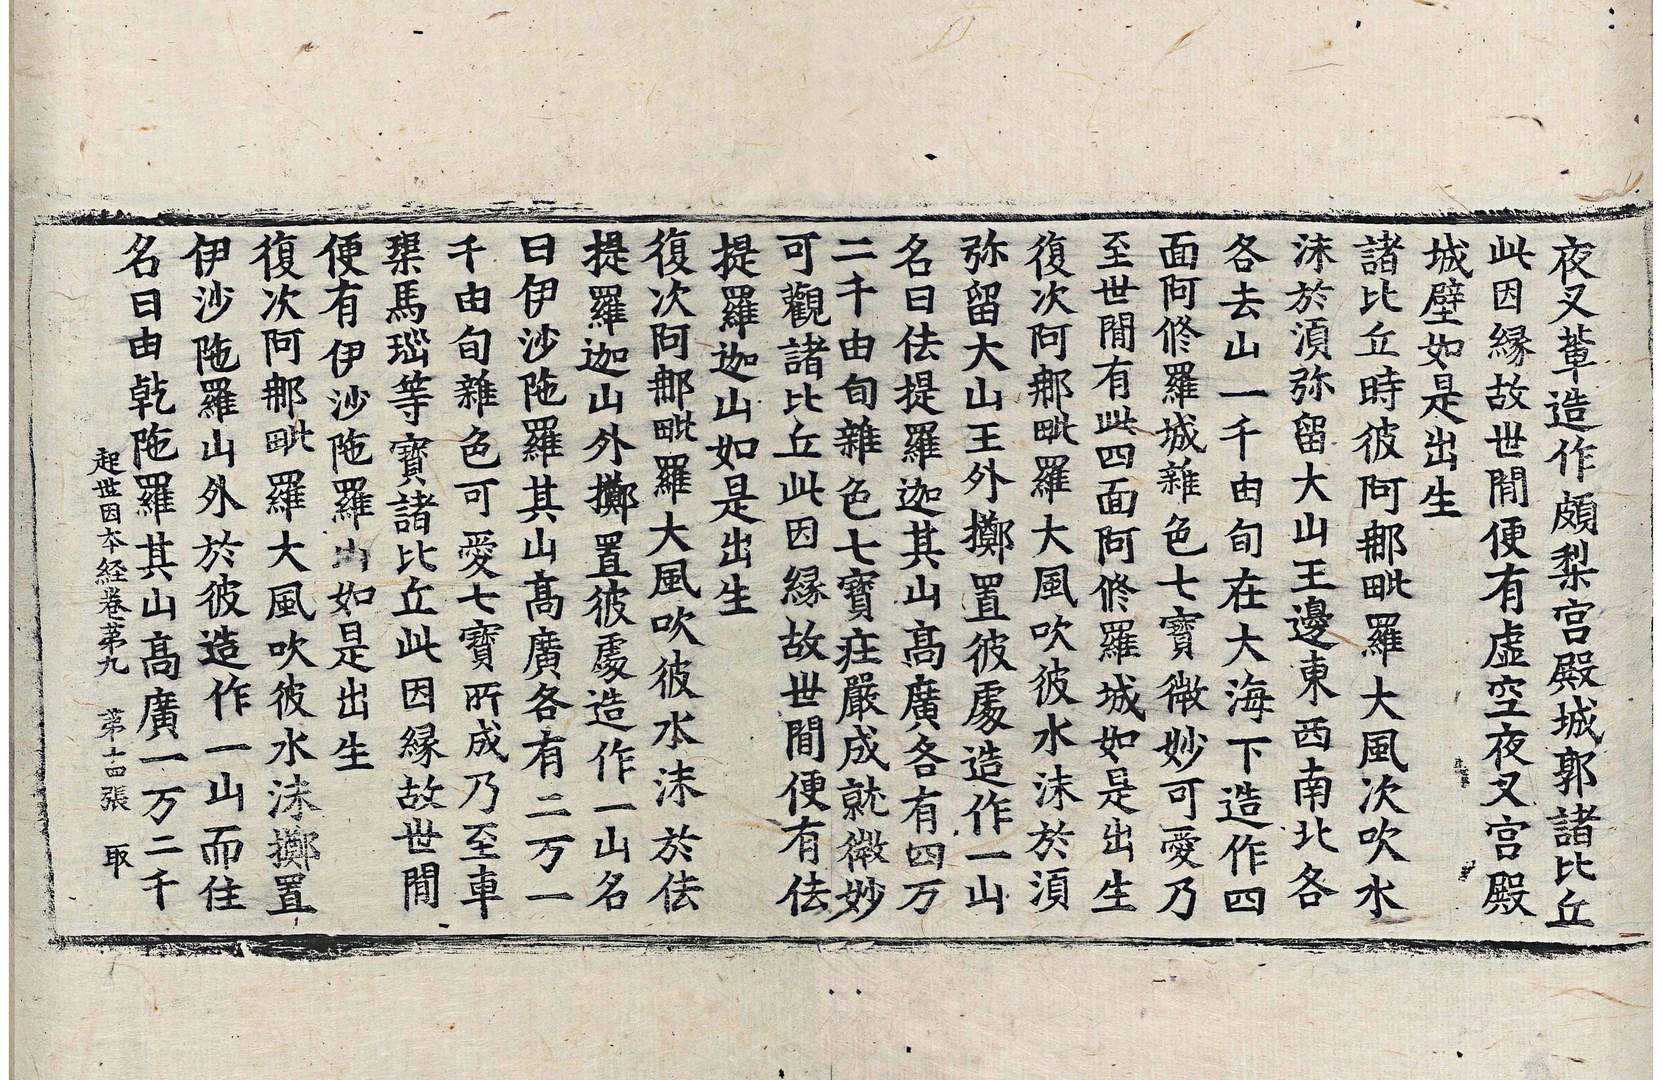 夜叉輩造作頗梨宮殿城郭諸比丘
此因縁故世間便有虛空夜叉宮殿
城壁如是出生
諸比丘時彼阿那毗羅大風次吹水
沫於湏弥留大山王邊東西南北各
各去山一千由旬在大海下造作四
面阿修羅城雜色七寶微妙可愛乃
至世間有此四面阿修羅城如是出生
復次阿那毗羅大風吹彼水沫於湏
弥留大山王外擲置彼處造作一山
名曰佉提羅迦其山高廣各有四万
二千由旬雜色七寶莊嚴成就微妙
可觀諸比丘此因縁故世間便有佉
提羅迦山如是出生
復次阿那毗羅大風吹彼水沫於佉
提羅迦山外擲置彼處造作一山名
曰伊沙陁羅其山高廣各有二万一
千由旬雜色可愛七寶所成乃至車
璖馬瑙等寶諸比丘此因縁故世間
便有伊沙陁羅山如是出生
復次阿那毗羅大風吹彼水沫擲置
伊沙陁羅山外於彼造作一山而住
名曰由乾陁羅其山高廣一万二千
起世因本経卷苐九 苐十四張 取